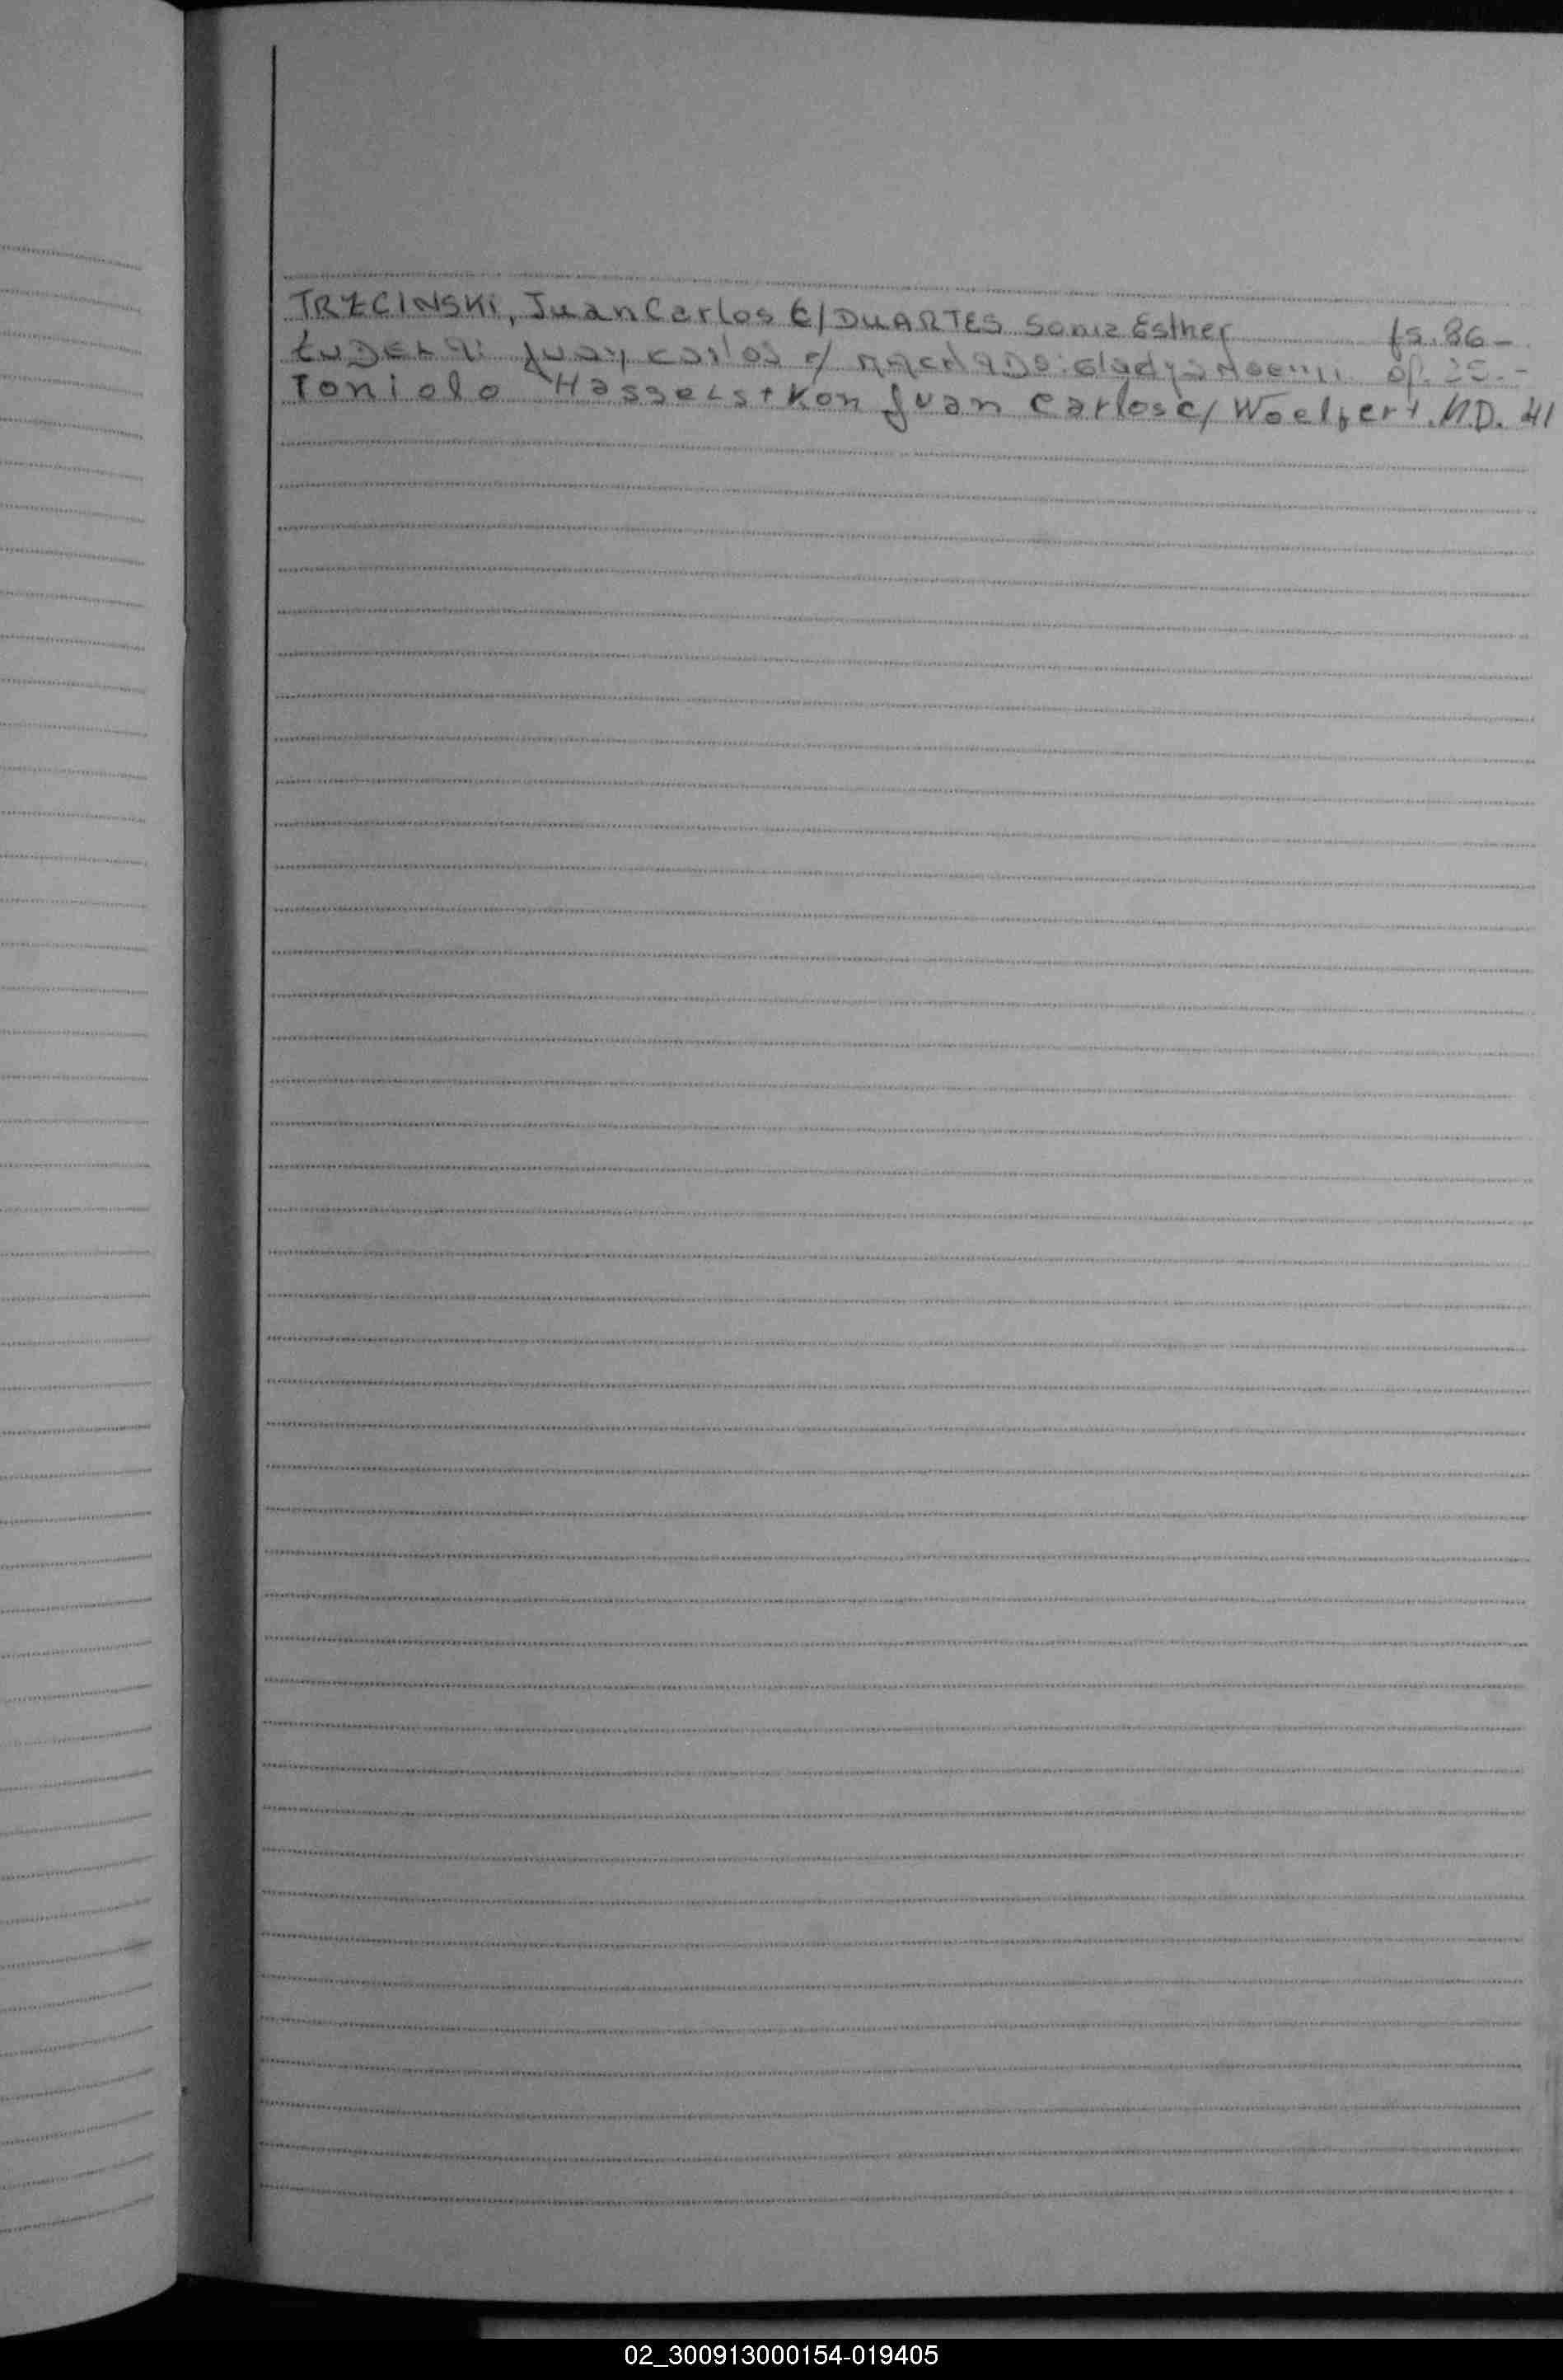 TRZCINSKI, Juan Carlos C/ DUARTES Sonia Esther fs. 86-
Juan Carlos c/ Gladys Noemi
Toniolo Hasselstkon Juan Carlos c/ Woelfert. N.D. 41
02_300913000154-019405